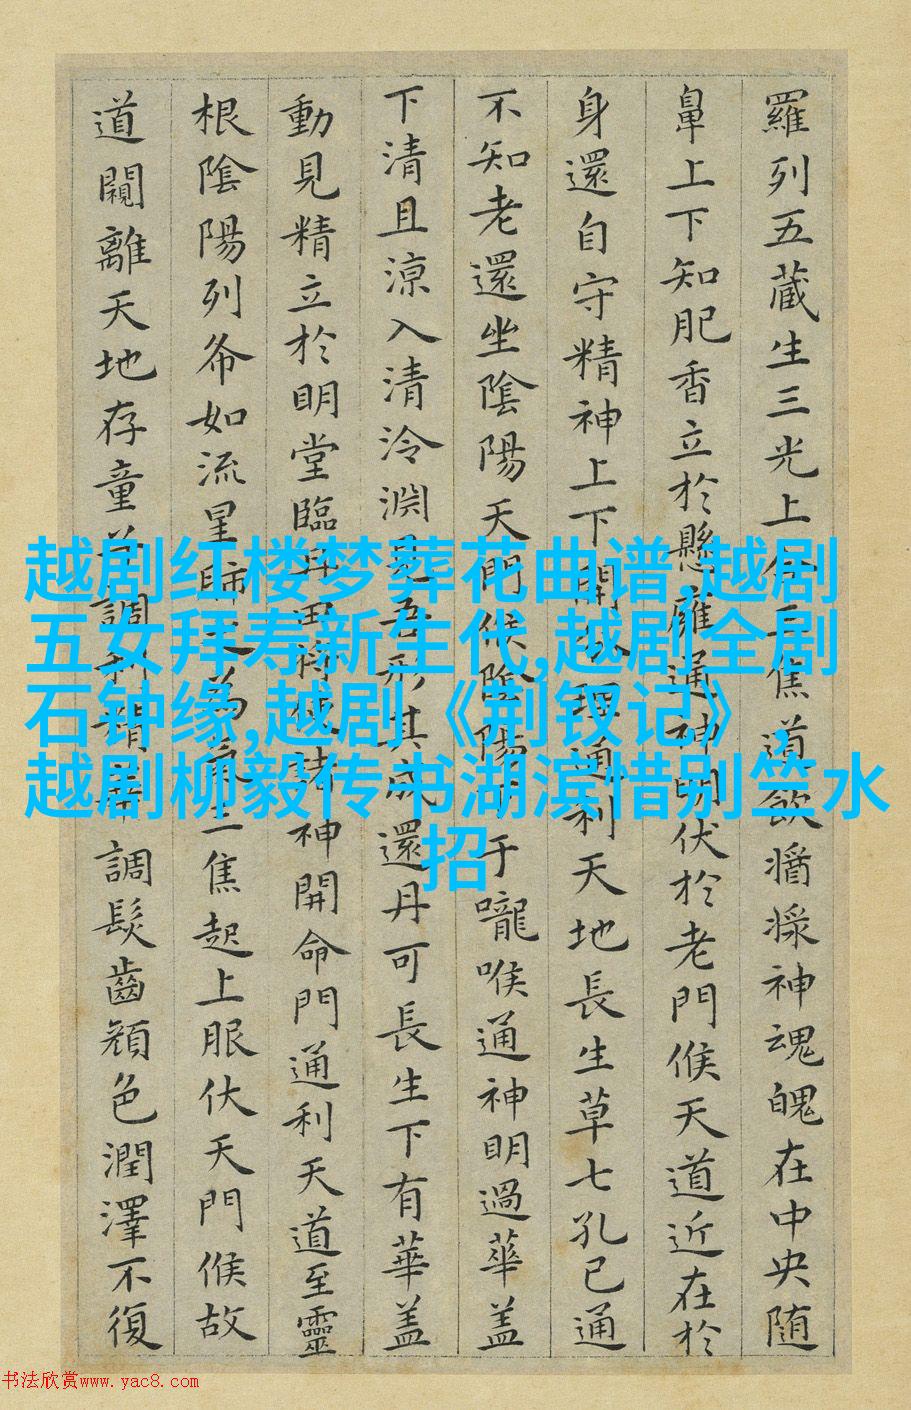 羅列五藏生三光上合三焦道飲醬漿神魂魄在中央随
鼻上下知肥香立於懸癰通神明伏於老門候天道近在於
身還自守精神上下開分理通利天地長生草七孔已通
不知老還坐陰陽天門候陰陽下于嚨喉通神明過華盖
下清且涼入清泠淵見吾形其成還丹可長生下有華盖
動見精立於明堂臨丹田將使諸神開命門通利天道至靈
根陰陽列布如流星肺之為氣三焦起上服伏天門候故
道闚離天地存童子調利精華調髮齒顏色潤澤不復
越剧红楼梦葬花曲谱,越剧
五女拜寿新生代,越剧全剧
石钟缘,越剧《荆钗记》,
越剧柳毅传书湖滨惜别竺水
招
书法欣赏www.yac8.com